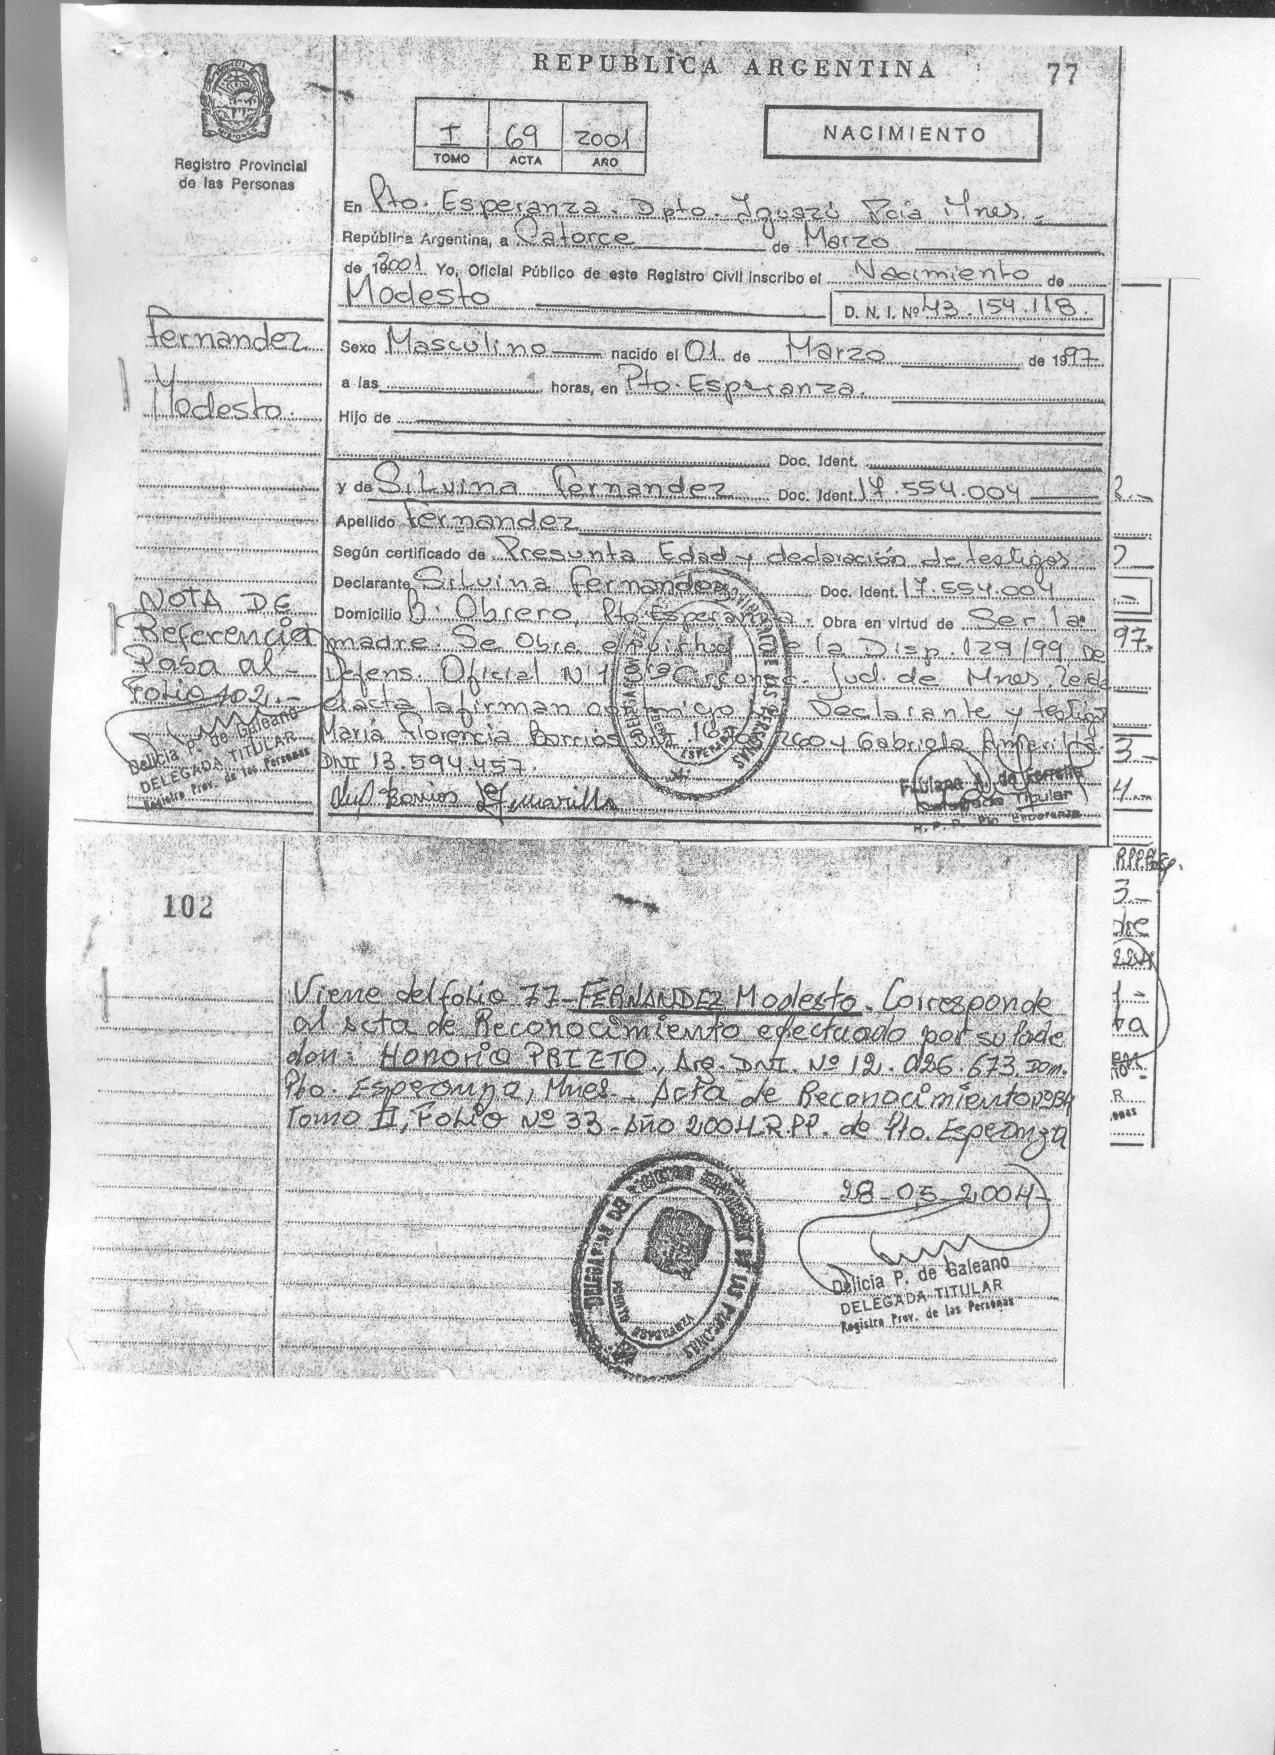 REPUBLICA ARGENTINA
77
Registro Provincial
de las Personas
I 69 2001
TOMO ACTA AÑO
NACIMIENTO
En Pto. Esperanza. Dpto. Iguazú Pcia Mnes.
República Argentina, a Catorce de Marzo
de 2001 Yo, Oficial Público de este Registro Civil inscribo el Nacimiento de
Modesto D. N. I. Nº 43.154.118.
Fernandez
Modesto.
Sexo Masculino nacido el 01 de Marzo de 1997
a las horas, en Pto. Esperanza.
Hijo de
Doc. Ident.
y de Silvina Fernandez Doc. Ident. 17.554.004
Apellido Fernandez
Según certificado de Presunta Edad y declaración de testigos
Declarante Silvina Fernandez Doc. Ident. 17.554.004
Domicilio B: Obrero, Pto Esperanza. Obra en virtud de Ser la
madre. Se Obra en virtud de la Disp. 129/99 De
Defens. Oficial Nº 1 3ra Circonc. Jud. de Mnes
el acta la firman Declarante y testigos
María Florencia Barrios DNI 16 260 y Gabriela Amarilla
DNI 13.594.457.
Barrios Amarilla
NOTA DE
Referencia
Pasa al
Folio 102.-
Delicia P. de Galeano
DELEGADA TITULAR
Registro Prov. de las Personas
Delegada Titular
R. P. P. Pto Esperanza
102
Viene del folio 77- FERNANDEZ Modesto. Corresponde
al acta de Reconocimiento efectuado por su Padre
don: Honorio PRIETO., Arg. DNI. Nº 12.026.673 Dom.
Pto. Esperanza, Mnes. Acta de Reconocimiento
Tomo II, Folio Nº 33- Año 2004.R.PP. de Pto. Esperanza
28-05-2004-
Delicia P. de Galeano
DELEGADA TITULAR
Registro Prov. de las Personas
DE LAS PERSONAS
PUERTO ESPERANZA